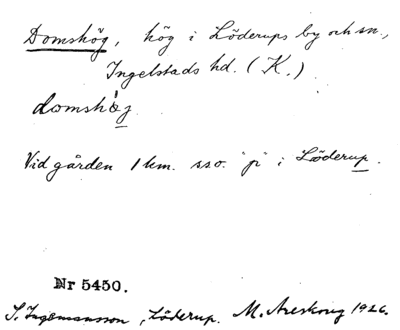 Domshög, hög i Löderups by och sn.,
Ingelstads hd. (K.)
domshög
Vid gården 1 km. sso. "p" i Löderup.
Nr 5450.
S. Ingemansson, Löderup. M. Areskoug 1926.